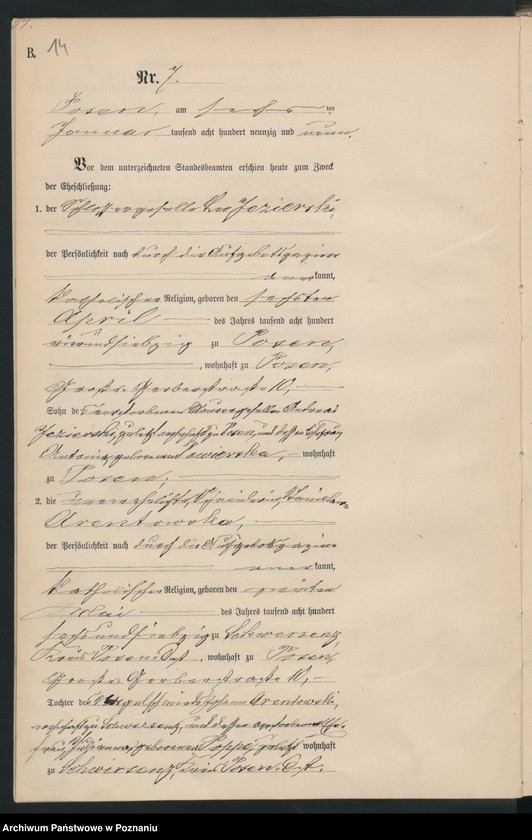 B. 14
Nr. 7.
Posen, am sechsten
Januar tausend acht hundert neunzig und neun.
Vor dem unterzeichneten Standesbeamten erschien heute zum Zweck
der Eheschließung:
1. der Schlossergeselle Leo Jezierski,
der Persönlichkeit nach durch die Aufgebots
aner kannt,
katholischer Religion, geboren den sechsten
April des Jahres tausend acht hundert
vierundsiebzig zu Posen,
, wohnhaft zu Posen,
Große Gerberstraße
Sohn des verstorbenen Maurergesellen Andreas
Jezierski, zuletzt wohnhaft zu Posen, und dessen Ehefrau
Antonie, geborenen wohnhaft
zu Posen;
2. die unverehelichte, Schneiderin, Stanislawa
Arentowska,
der Persönlichkeit nach durch die Aufgebots
aner kannt,
katholischer Religion, geboren den
Mai des Jahres tausend acht hundert
sechsundsiebzig zu Schwersenz
Kreis Posen-Ost, wohnhaft zu Posen,
Große Gerberstraße
Tochter des Johann Arentowski,
wohnhaft zu Schwersenz, und dessen verstorbenen Ehe-
frau, geborenen Poppe, zuletzt wohnhaft
zu Schwersenz, Kreis Posen-Ost.
Archiwum Państwowe w Poznaniu